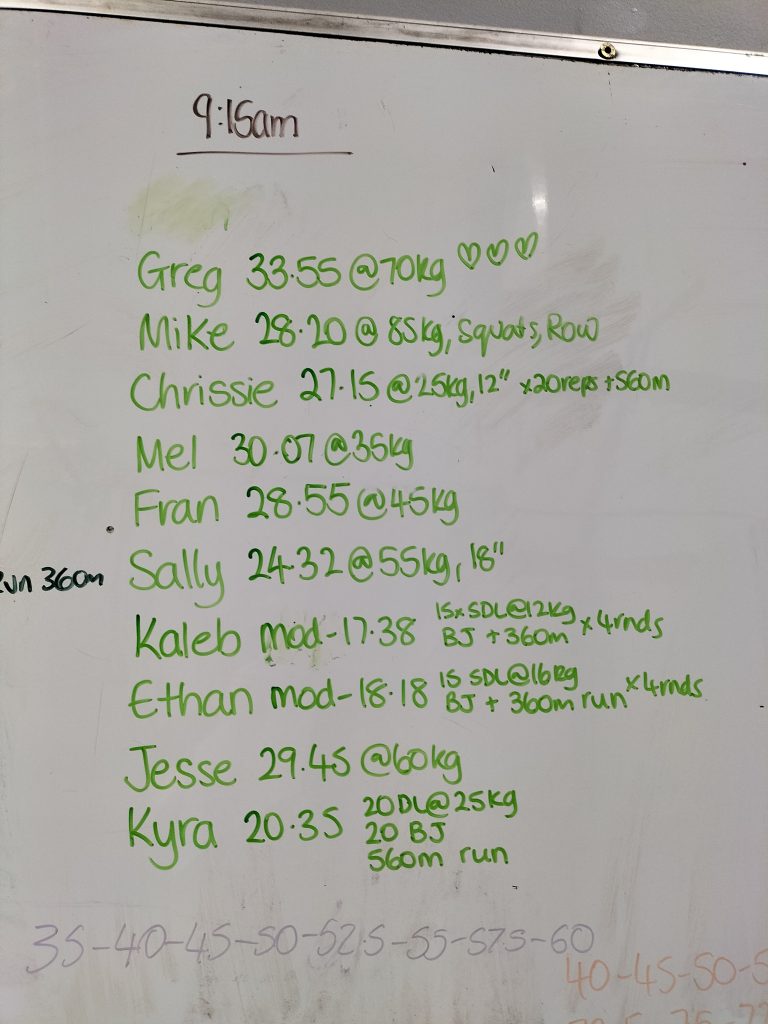 9:15am
Greg 33.55 @70kg ♡♡♡
Mike 28.20 @ 85kg, Squats, Row
Chrissie 27.15 @25kg, 12" x20reps +560m
Mel 30.07 @35kg
Fran 28.55 @45kg
360m Sally 24.32 @55kg, 18"
Kaleb mod-17.38 15xSDL@12kg x4rnds
BJ + 360m
Ethan mod-18.18 15 SDL@16kg x4rnds
BJ + 360m run
Jesse 29.45 @60kg
Kyra 20.35 20DL@25kg
20 BJ
560m run
35-40-45-50-52.5-55-57.5-60
40-45-50-5